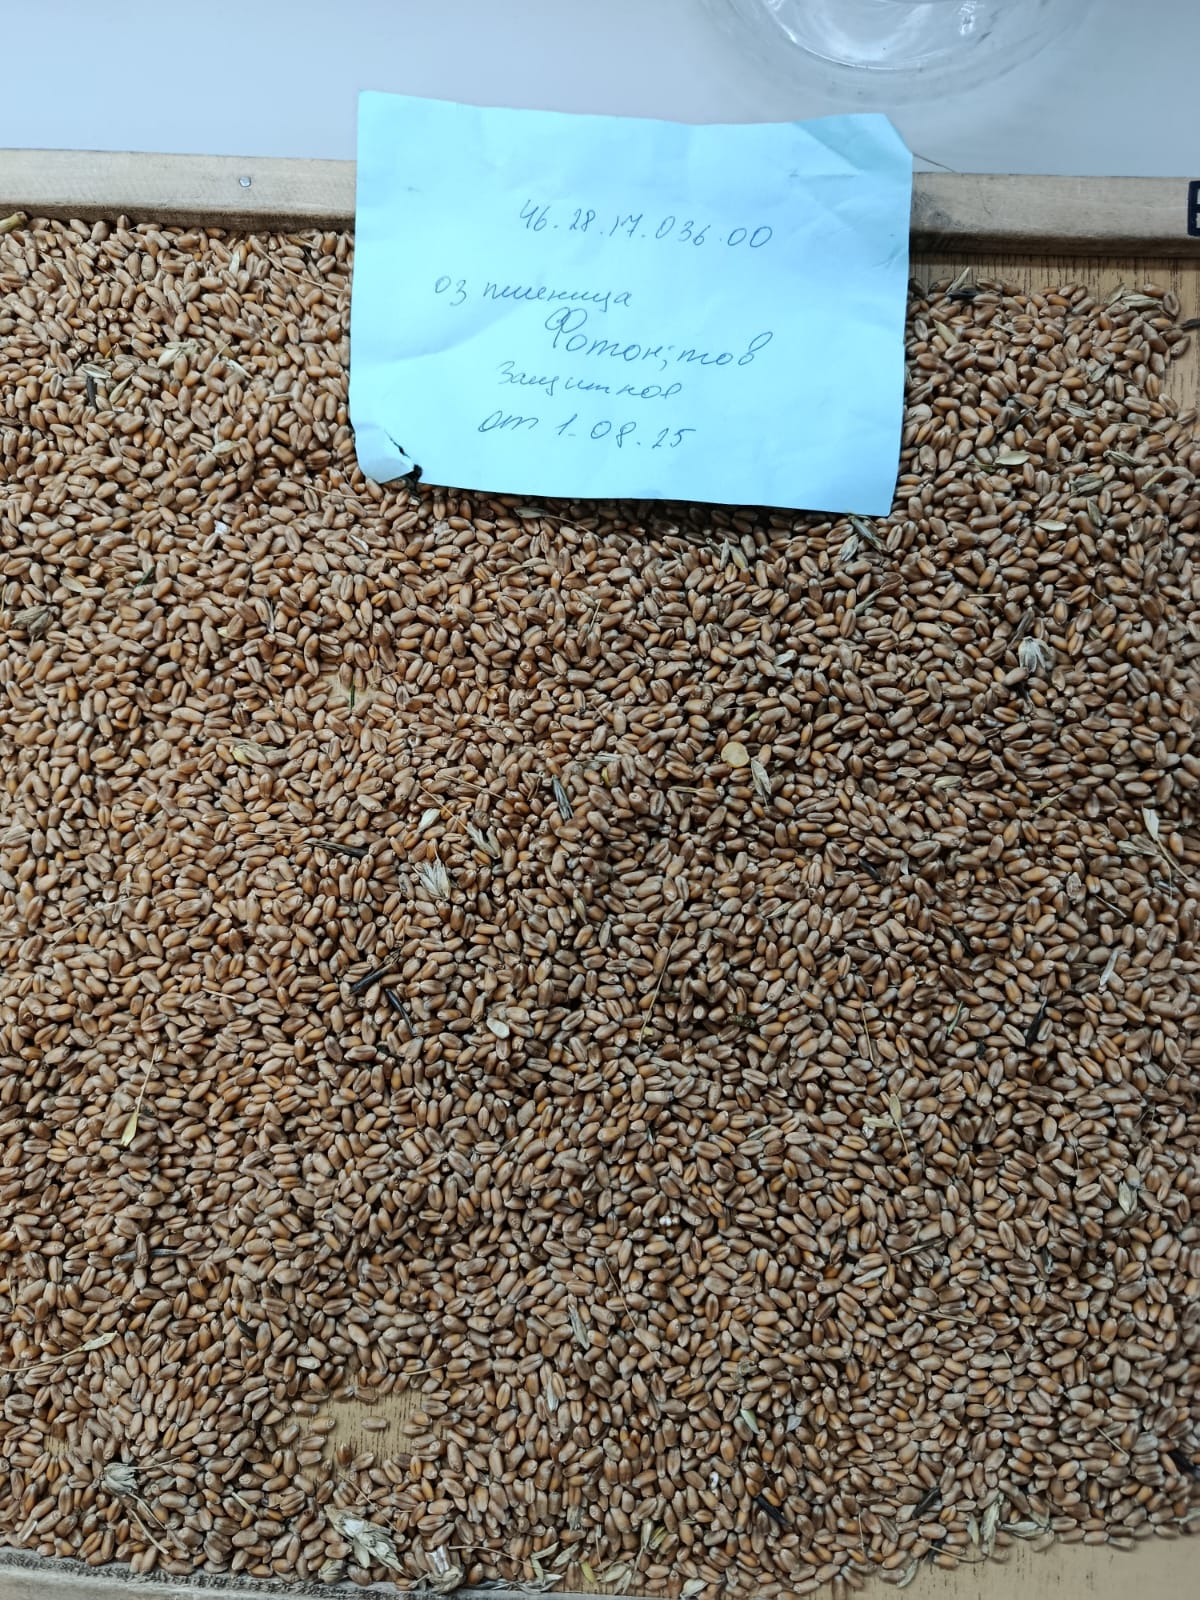 46.28.17.036.00
оз пшеница
Фотон; тов
Защитное
от 1.08.25